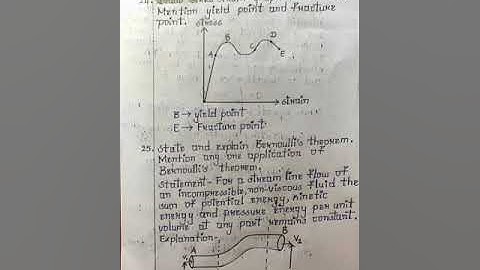 Mention yield point and fracture
point.
stress
B
D
A
C
E
strain
B → yield point
E → Fracture point
25. State and explain Bernoulli's theorem.
Mention any one application of
Bernoulli's theorem.
Statement - For a stream line flow of
an incompressible, non-viscous fluid the
sum of potential energy, kinetic
energy and pressure energy per unit
volume at any part remains constant.
Explanation-
A
B
V₂